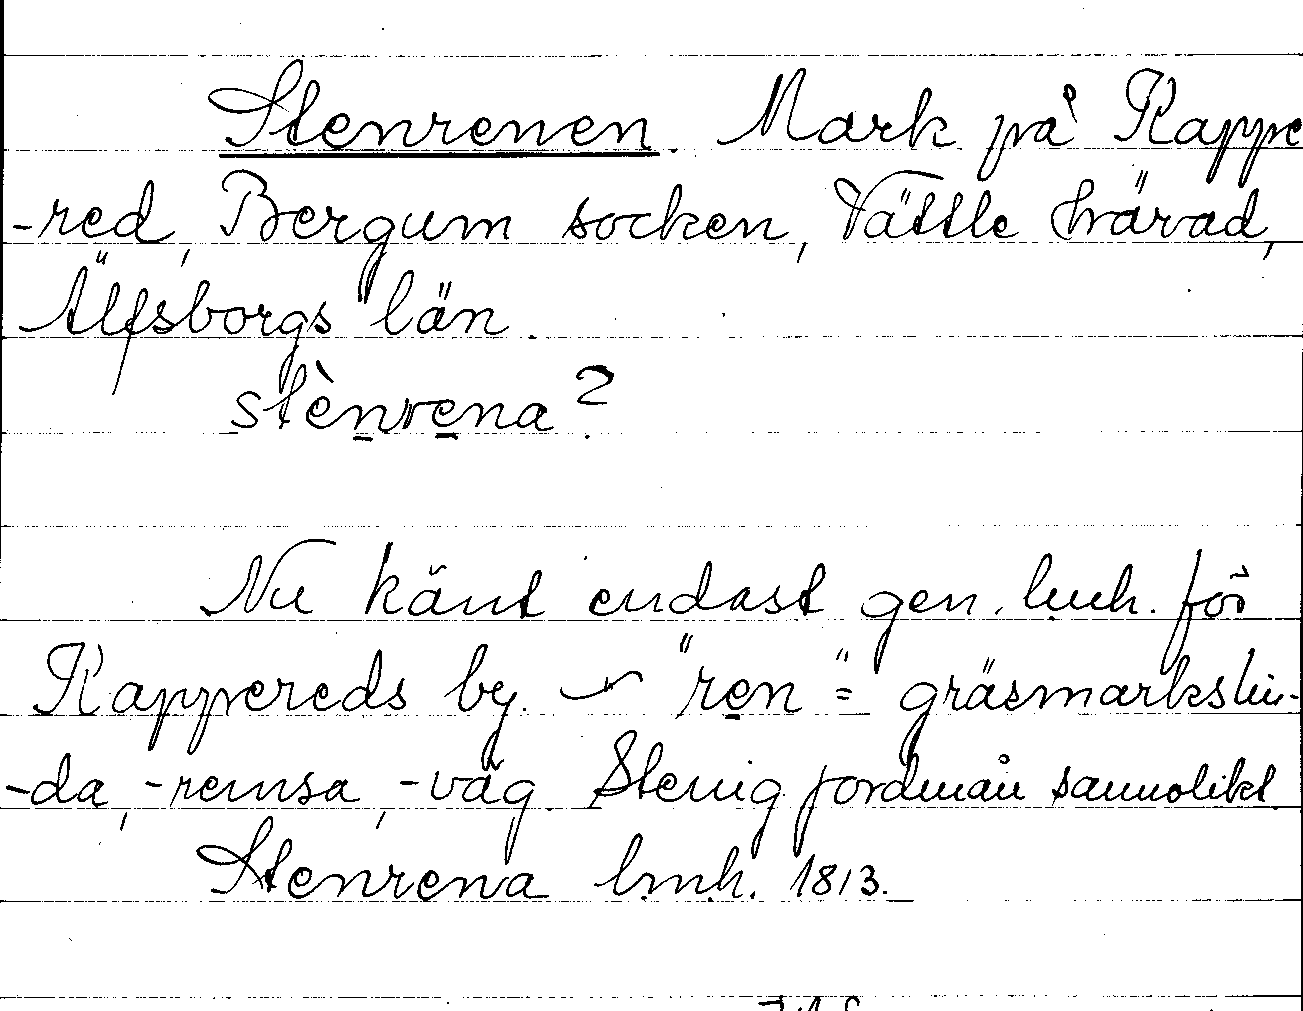 Stenrenen. Mark på Rappe
-red, Bergum socken, Vättle härad,
Älfsborgs län.
stènrena?
Nu känt endast gen. lmh. för
Rappereds by. ~ "ren" = gräsmarkslin-
-da, -remsa, -väg. Stenig jordmån sannolikt.
Stenrena lmh. 1813.